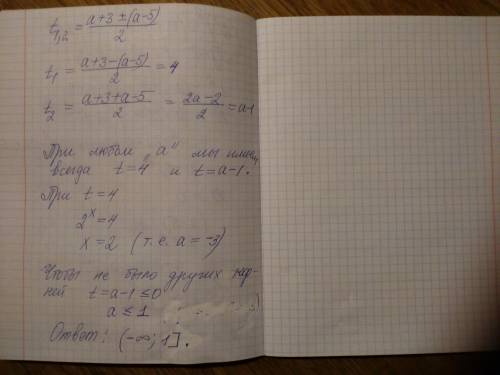 t₁,₂ = (a+3 ± (a-5))/2
t₁ = (a+3-(a-5))/2 = 4
t₂ = (a+3+a-5)/2 = (2a-2)/2 = a-1
При любом „a" мы имеем
всегда t=4 и t=a-1.
При t=4
2ˣ=4
x=2 (т.е. a = -3)
Чтобы не было других кор-
ней t=a-1≤0
a ≤ 1
Ответ: (-∞; 1].